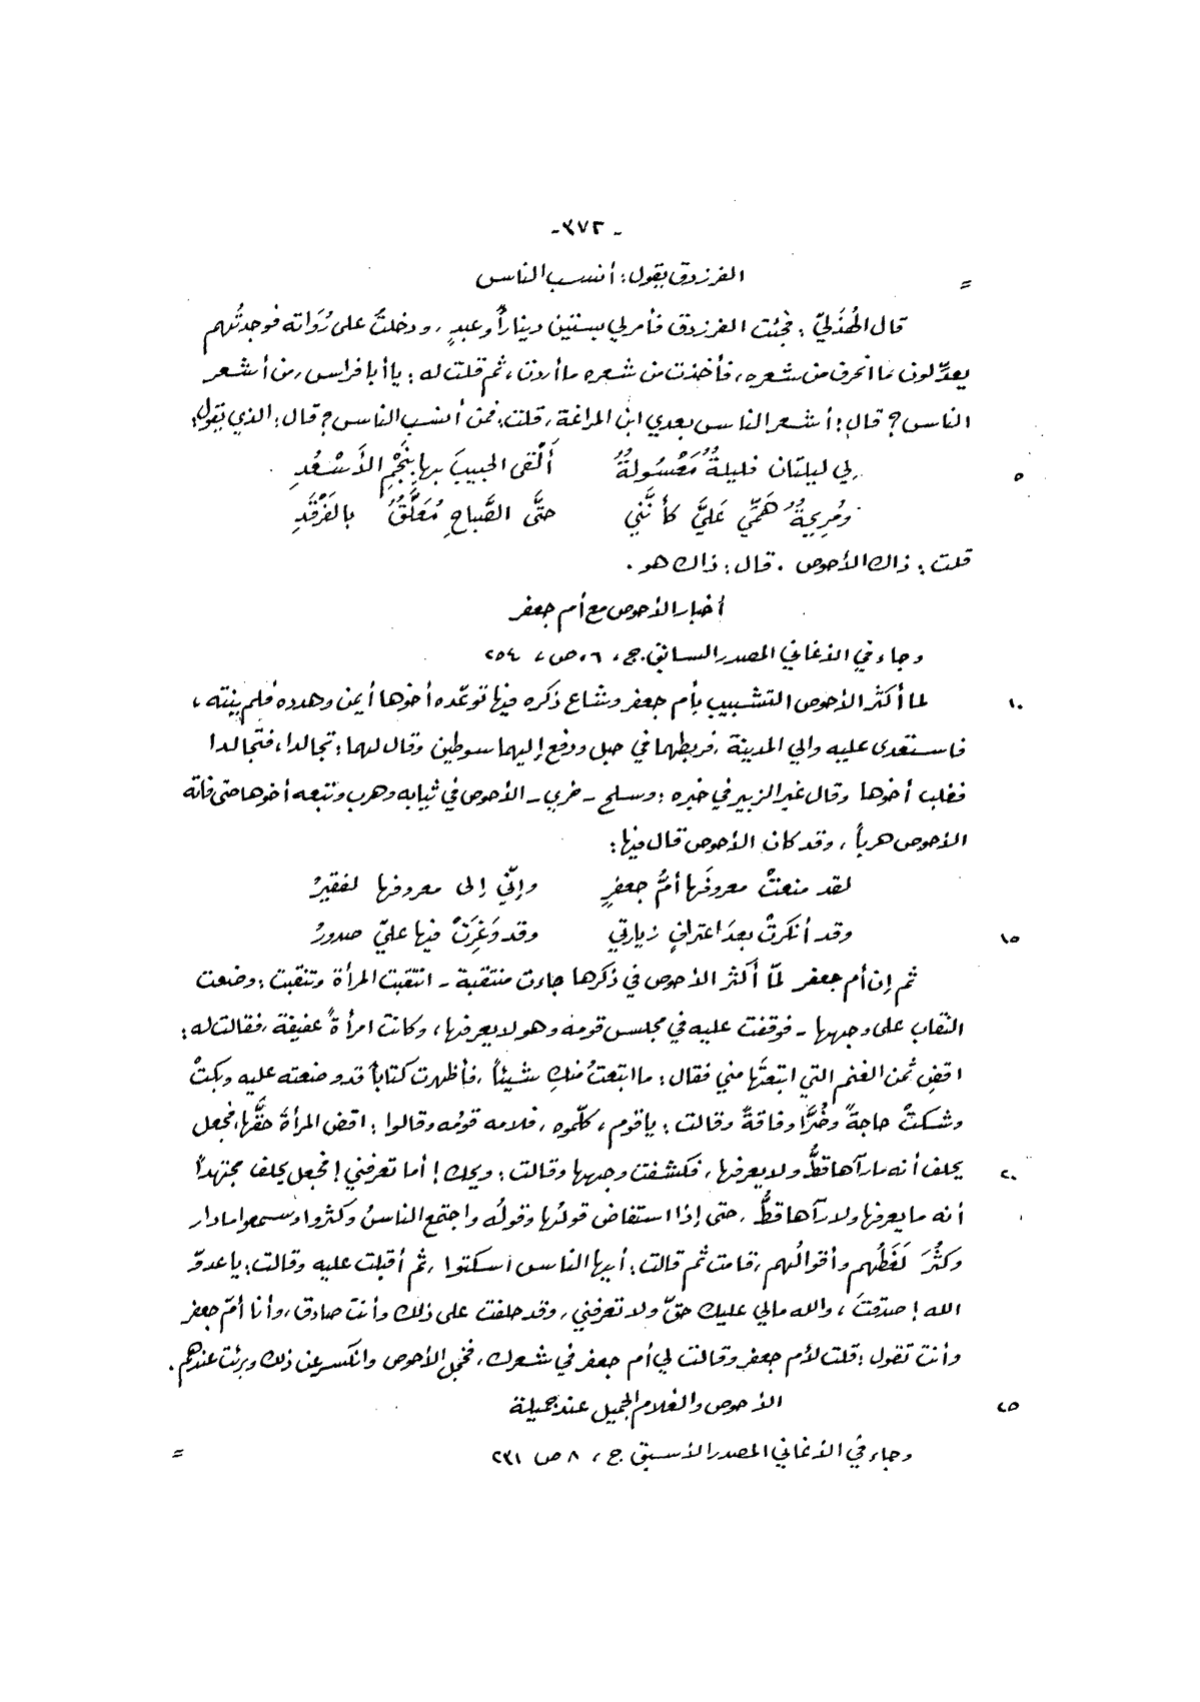 - ٣٧٢ -
= الفرزدق يقول: أنسب الناس
قال الهُذَليّ: فجئت الفرزدق فأمر لي بستين ديناراً وعبدٍ، ودخلتُ على رُوَاته فوجدتُهم
يعدِّلون ما انحرف من شعره، فأخذت من شعره ما أردت، ثم قلت له: يا أبا فراس، من أشعر
الناس؟ قال: أشعر الناس بعدي ابن المراغة، قلت: فمن أنسب الناس؟ قال: الذي يقول:
لي ليلتان فليلةٌ مَعْسُولةٌ ألْقى الحبيبَ بها بِنَجْمِ الأَسْعُدِ ٥
ومُرِيحةٌ هَمِّي عَليَّ كأنَّني حتَّى الصَّباحِ مُعَلَّقٌ بالفَرْقَدِ
قلت: ذاك الأحوص. قال: ذاك هو.
أخبار الأحوص مع أم جعفر
وجاء في الأغاني المصدر السابق. ج، ٦، ص، ٢٥٤
لما أكثر الأحوص التشبيب بأم جعفر وشاع ذكره فيها توعّده أخوها أيمن وهدده فلم ينته، ١٠
فاستعدى عليه والي المدينة، فربطهما في حبل ودفع إليهما سوطين وقال لهما: تجالدا، فتجالدا
فغلب أخوها وقال غير الزبير في خبره: وسلح - خري - الأحوص في ثيابه وهرب وتبعه أخوها حتى فاته
الأحوص هرباً، وقد كان الأحوص قال فيها:
لقد منعتْ معروفَها أمُّ جعفرٍ وإنّي إلى معروفها لفقيرُ
وقد أنكرتْ بعدَ اعترافٍ زيارتي وقد وَغِرَتْ فيها عليّ صدورُ ١٥
ثم إن أم جعفر لمّا أكثر الأحوص في ذكرها جاءت منتقبة - انتقبت المرأة وتنقبت: وضعت
النّقاب على وجهها - فوقفت عليه في مجلس قومه وهو لا يعرفها، وكانت امرأةً عفيفة، فقالت له:
اقضِ ثمن الغنم التي ابتعتَها مني فقال: ما ابتعتُ منكِ شيئاً، فأظهرت كتاباً قد وضعته عليه وبكتْ
وشكتْ حاجةً وضُرّاً وفاقةً وقالت: يا قوم، كلّموه، فلامه قومُه وقالوا: اقض المرأة حقَّها، فجعل
يحلف أنه ما رآها قطُّ ولا يعرفها، فكشفت وجهها وقالت: ويحك! أما تعرفني! فجعل يحلف مجتهداً ٢٠
أنه ما يعرفها ولا رآها قطُّ، حتى إذا استفاض قولُها وقولُه واجتمع الناسُ وكثروا وسمعوا ما دار
وكثُرَ لَغَطُهم وأقوالُهم، قامت ثم قالت: أيها الناس اسكتوا، ثم أقبلت عليه وقالت: يا عدوّ
الله! صدقتَ، والله مالي عليك حقّ ولا تعرفني، وقد حلفت على ذلك وأنت صادق، وأنا أمّ جعفر
وأنت تقول: قلت لأم جعفر وقالت لي أم جعفر في شعرك، فخجل الأحوص وانكسر عن ذلك وبرئت عندهم.
الأحوص والغلام الجميل عند جميلة ٢٥
وجاء في الأغاني المصدر الأسبق ج، ٨ ص ٢٣١ =